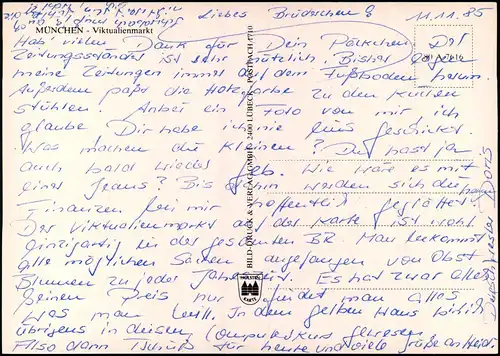 Liebes Brüderchen! 11.11.85
MÜNCHEN - Viktualienmarkt
Hab vielen Dank für Dein Päckchen. Der
Zeitungsständer ist sehr nützlich. Bisher lagen
meine Zeitungen immer auf dem Fußboden herum.
Außerdem paßt die Holzfarbe zu den
Stühlen. Anbei ein Foto von mir ich
glaube Dir habe ich nie eins geschickt.
Was machen die Kleinen? Du hast ja
auch bald wieder Geb. Wie wäre es mit
einer Jeans? Bis dahin werden sich die
Finanzen bei mir hoffentlich geglättet haben.
Der Viktualienmarkt auf der Karte ist wohl
einzigartig in der gesamten BR. Man bekommt
alle möglichen Sachen angefangen von Obst
Blumen zu jeder Jahreszeit. Es hat zwar alles
seinen Preis nur findet man alles
was man will. In dem gelben Haus bin ich
übrigens in diesem Computerkurs gewesen.
Also dann Tschüß für heute und viele Grüße an Heidi
BILD-DRUCK & VERLAG GMBH · 2400 LÜBECK · POSTFACH 1710